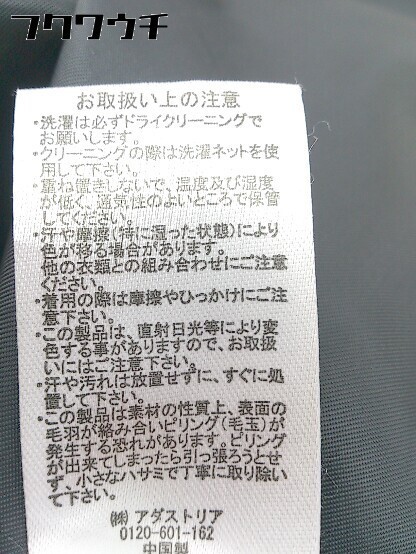 フクワウチ
お取扱い上の注意
・洗濯は必ずドライクリーニングで
お願いします。
・クリーニングの際は洗濯ネットを使
用して下さい。
・重ね置きしないで、温度及び湿度
が低く、通気性のよいところで保管
してください。
・汗や摩擦(特に湿った状態)により
色が移る場合があります。
他の衣類との組み合わせにご注意
ください。
・着用の際は摩擦やひっかけにご注
意下さい。
・この製品は、直射日光等により変
色する事がありますので、お取扱
いにはご注意下さい。
・汗や汚れは放置せずに、すぐに処
置して下さい。
・この製品は素材の性質上、表面の
毛羽が絡み合いピリング(毛玉)が
発生する恐れがあります。ピリング
が出来てしまったら引っ張ろうとせ
ず、小さなハサミで丁寧に取り除い
て下さい。
㈱ アダストリア
0120-601-162
中国製